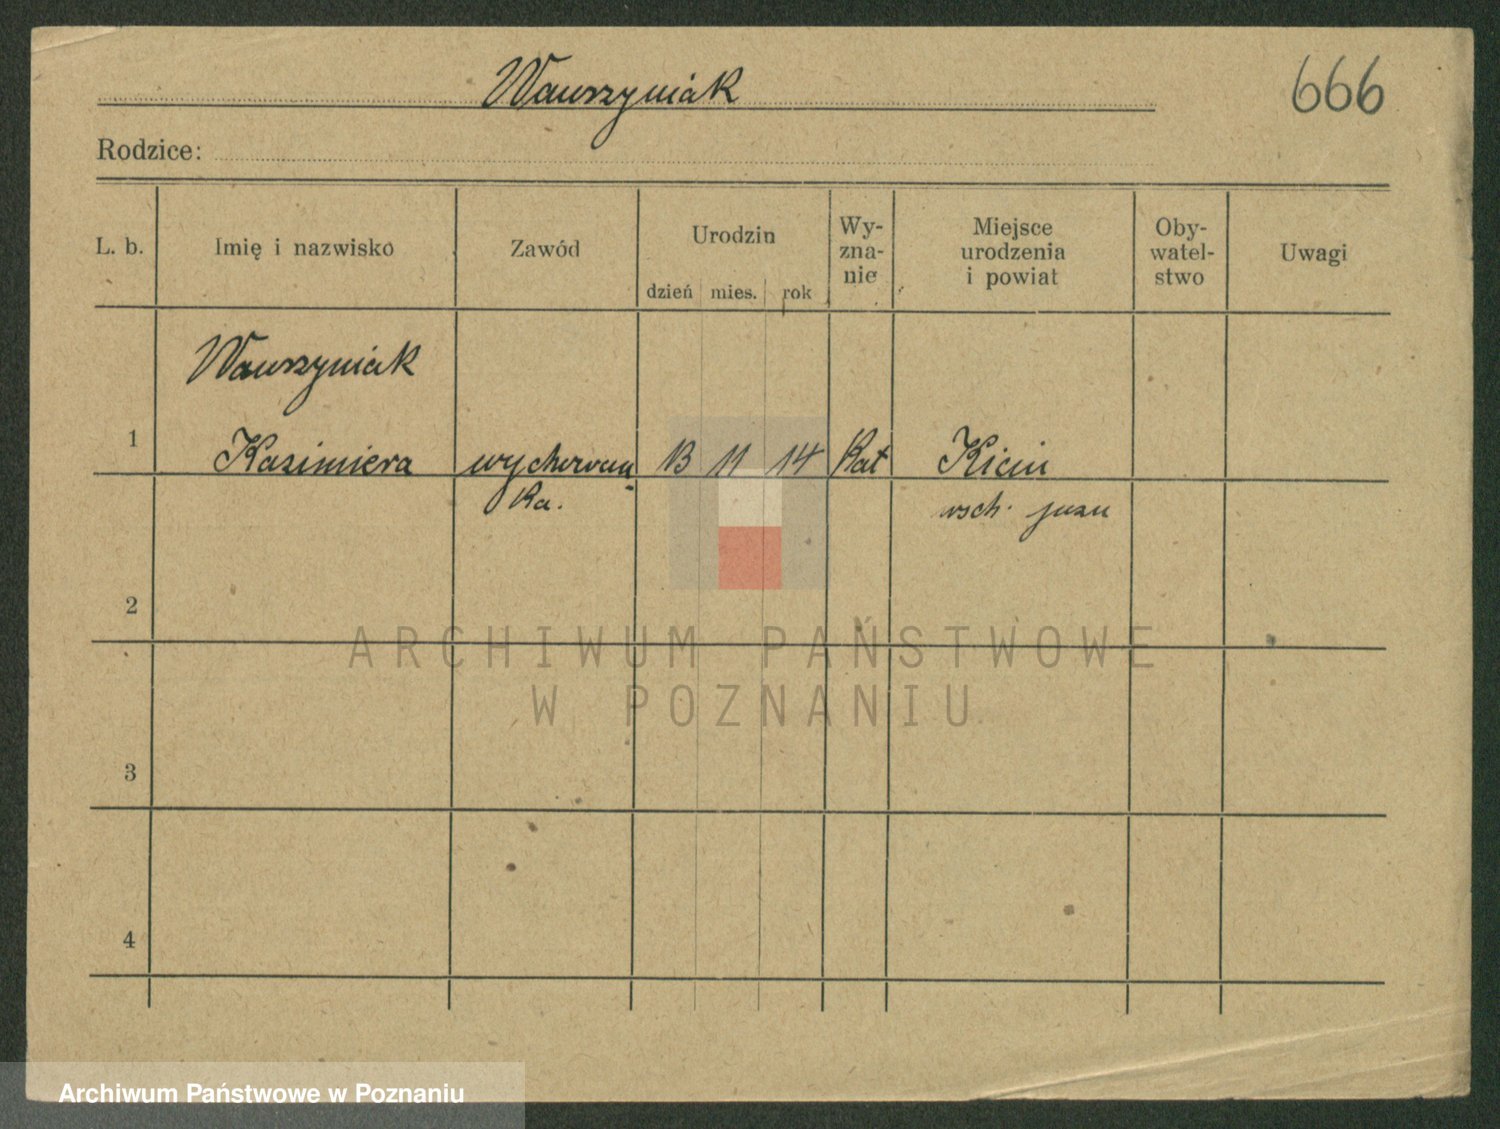 Wawrzyniak
666
Rodzice:
L. b.
Imię i nazwisko
Zawód
Urodzin
dzień mies. rok
Wy-
zna-
nie
Miejsce
urodzenia
i powiat
Oby-
watel-
stwo
Uwagi
Wawrzyniak
1 Kazimiera wychowaw 13 11 14 Kat Kicin
ka.
wsch.
2
ARCHIWUM PAŃSTWOWE
W POZNANIU
3
4
Archiwum Państwowe w Poznaniu